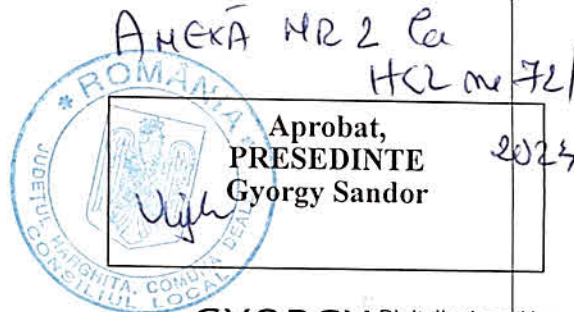 ANEXĂ NR 2 la
HCL nr 72/
2024
* ROMÂNIA *
JUDEȚUL HARGHITA, COMUNA DEALU
CONSILIUL LOCAL
Aprobat,
PRESEDINTE
Gyorgy Sandor
GYORGY